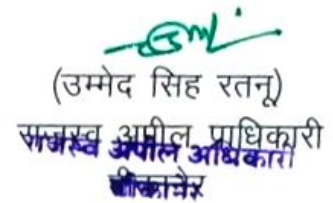 (उम्मेद सिह रतनू)
राजस्व अपील प्राधिकारी
राजस्व अपील अधिकारी
बीकानेर